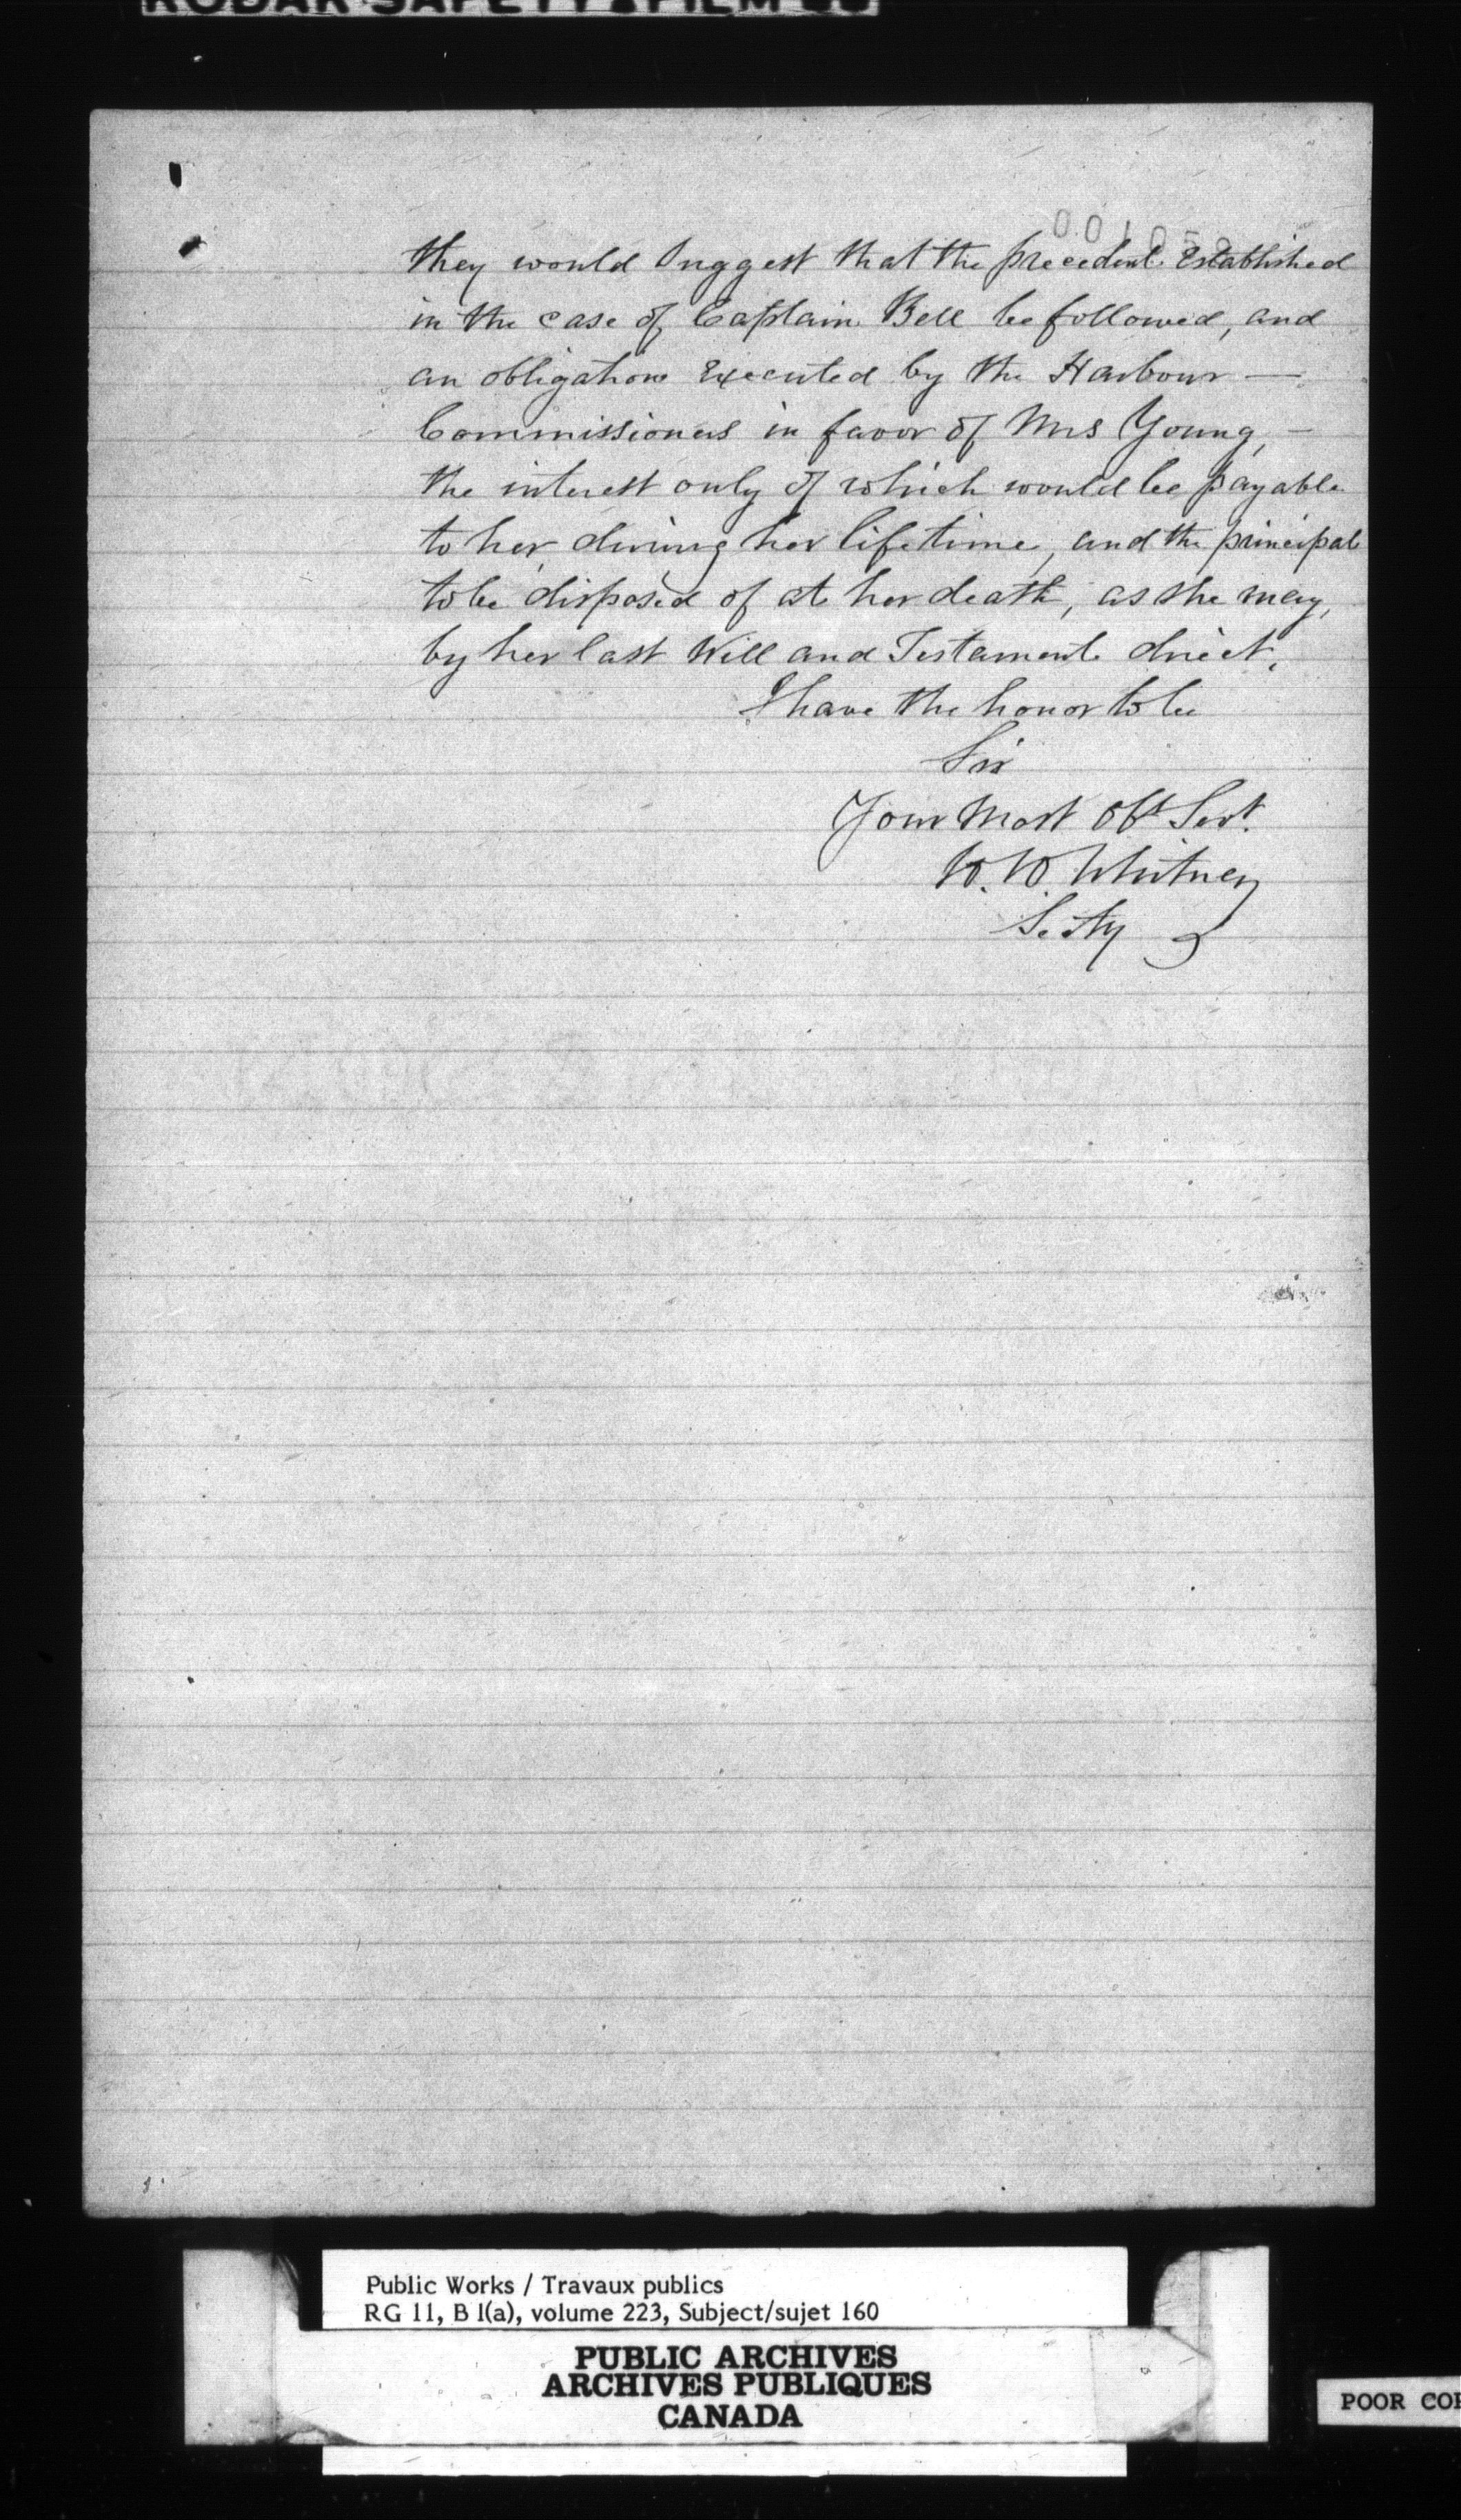 KODAK SAFETY FILM
they would suggest that the precedent Established
in the case of Captain Bell be followed, and
an obligation Executed by the Harbour —
Commissioners in favor of Mrs Young, —
the interest only of which would be payable
to her during her lifetime, and the principal
to be disposed of at her death, as she may,
by her last Will and Testament direct.
I have the honor to be
Sir
Your Most Obt Servt.
W. W. Whitney
Secty
Public Works / Travaux publics
RG 11, B 1(a), volume 223, Subject/sujet 160
PUBLIC ARCHIVES
ARCHIVES PUBLIQUES
CANADA
POOR COP